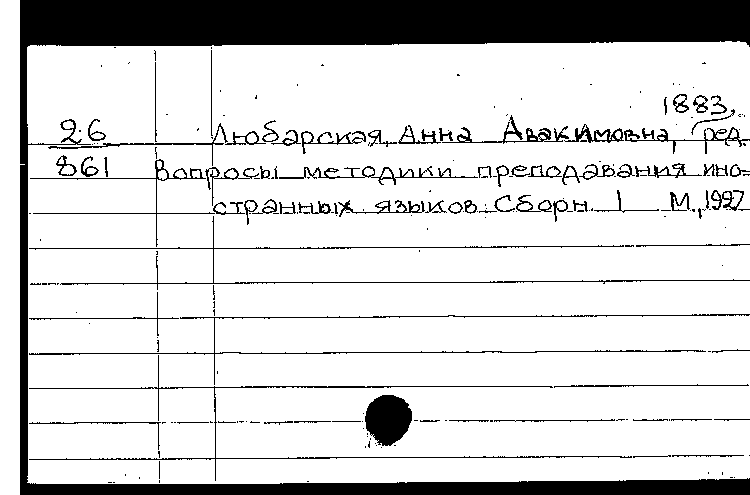 1883,
26 Любарская, Анна Авакимовна, ред.
861 Вопросы методики преподавания ино-
странных языков. Сборн. 1 М., 1927